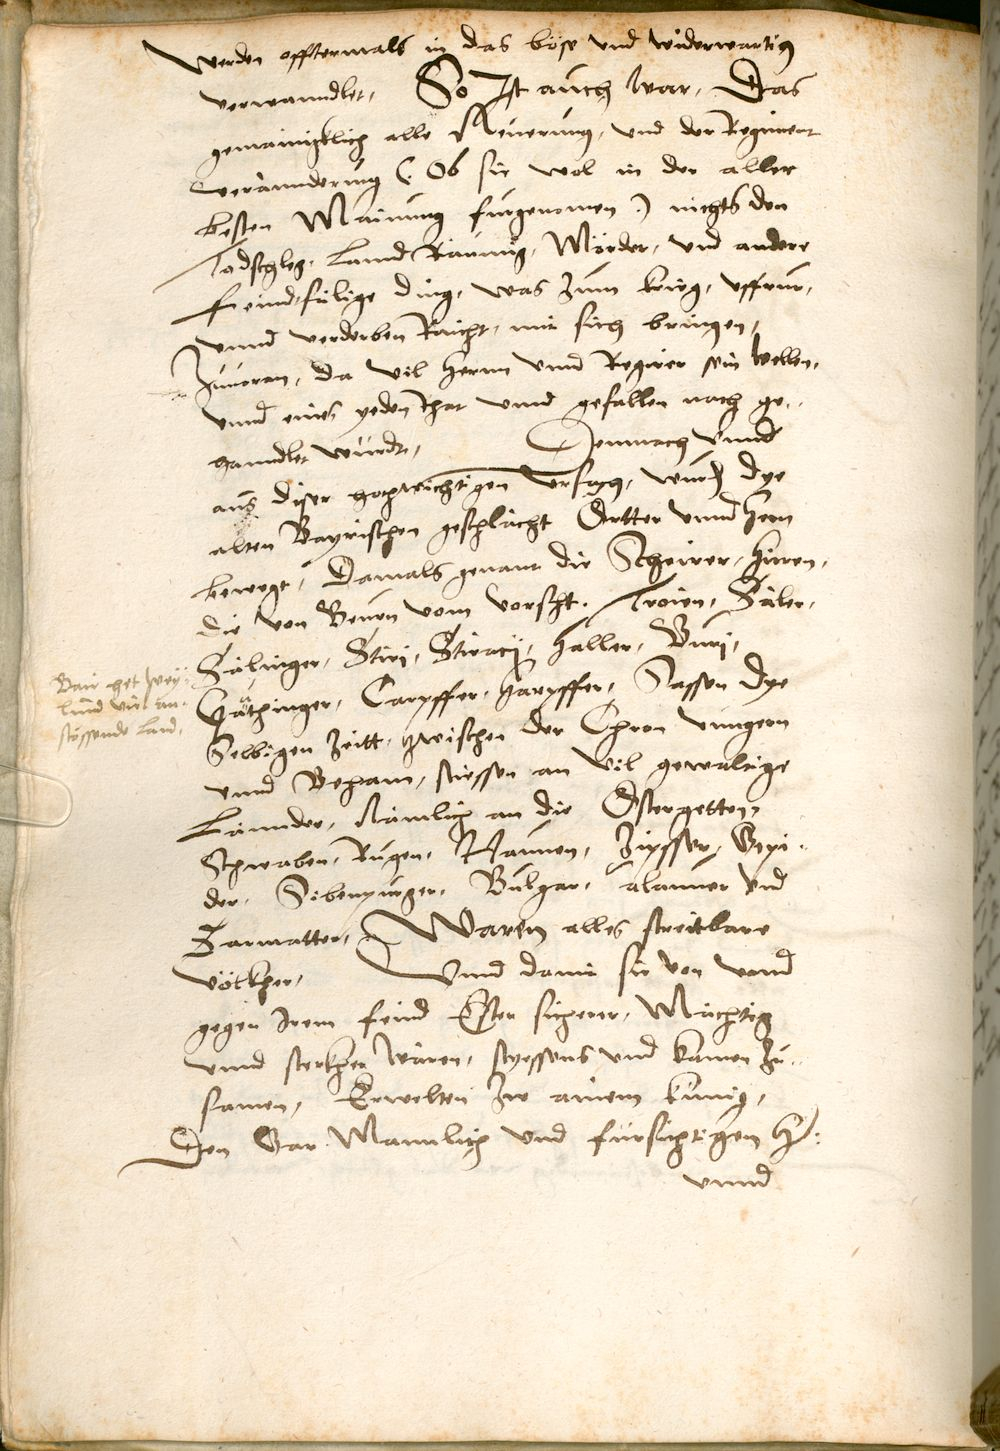 Werden offtermals in das böse vnd widerwartig
verwanndlet, So Ist auch war, Das
gemainigklich alle Neuerung, vnd der Regiment
verännderung (: Ob sie wol in der aller
besten Mainung furgenomen :) nichts den
Todschleg, Lannd Raumig, Mörder, vnd andere
feindsälige ding, was zum krieg, vffrur,
vnnd verderben Raicht, mit sich bringen,
Zuuoran, da vil herrn vnnd Regirer sein wellen,
vnnd eines yeden that vnnd gefallen nach ge-
hanndlet wurdt, Demnach vnnd
aus diser hochwichtigen vrsach, wurd dye
alten Bayrischen geschlächt Ortter vnnd hern
bewegt, Damals genant die Scheirer, hirren,
die von Beuen vom vorscht, Troien, Zäler,
Zälinger, Stiri, Stiracij, haller, Buri,
Gätzinger, Carpffer, harpffer, Sassen dye
Selbigen Zeitt, zwischen der Chron vnngern
vnnd Beham, stiessen an vil gewaltige
Lännder, Nämlich an die Ostergetten,
Schwaben, Rugen, Haunen, Zipsser, Gepi-
der, Sibenpurger, Bulgar, alanner vnd
Zarmatter, Waren alles streitbare
völckher, Vnnd damit sie von vnnd
gegen Irem feind Ester sicherer, Mächtig
vnnd sterkher wären, vnd kamen zu-
samen, Erwelten zw ainem künig,
Den Gar Mannlich vnd fürsichtigen H:
vnnd
Bair het wey-
lund vil an-
stossende land,